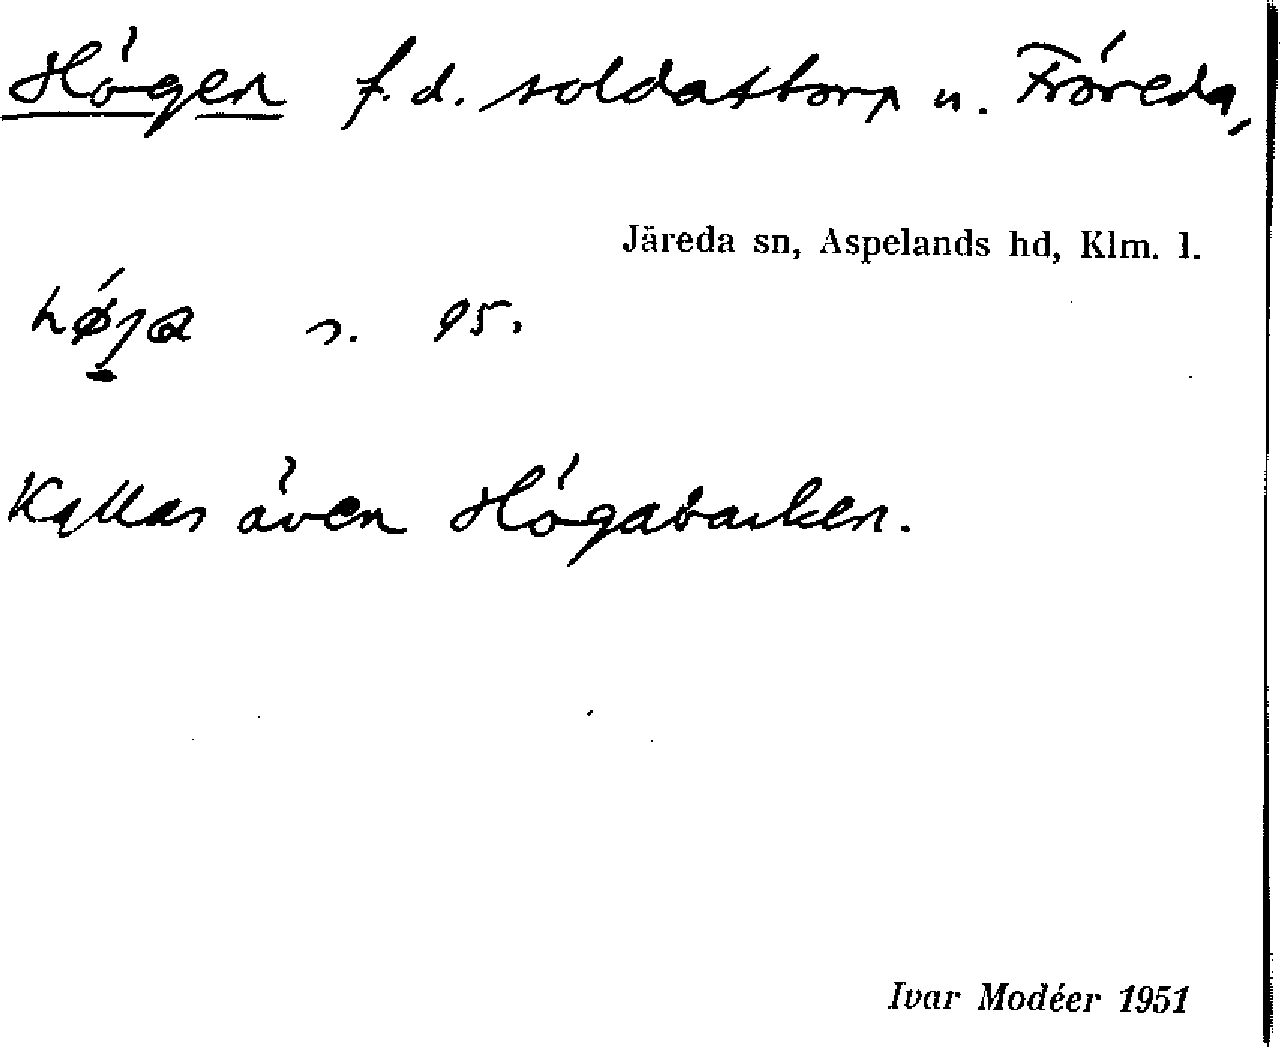 Högen f.d. soldattorp u. Fröreda,
Järeda sn, Aspelands hd, Klm. l.
s. 95.
Kallas även Högabacken.
Ivar Modéer 1951